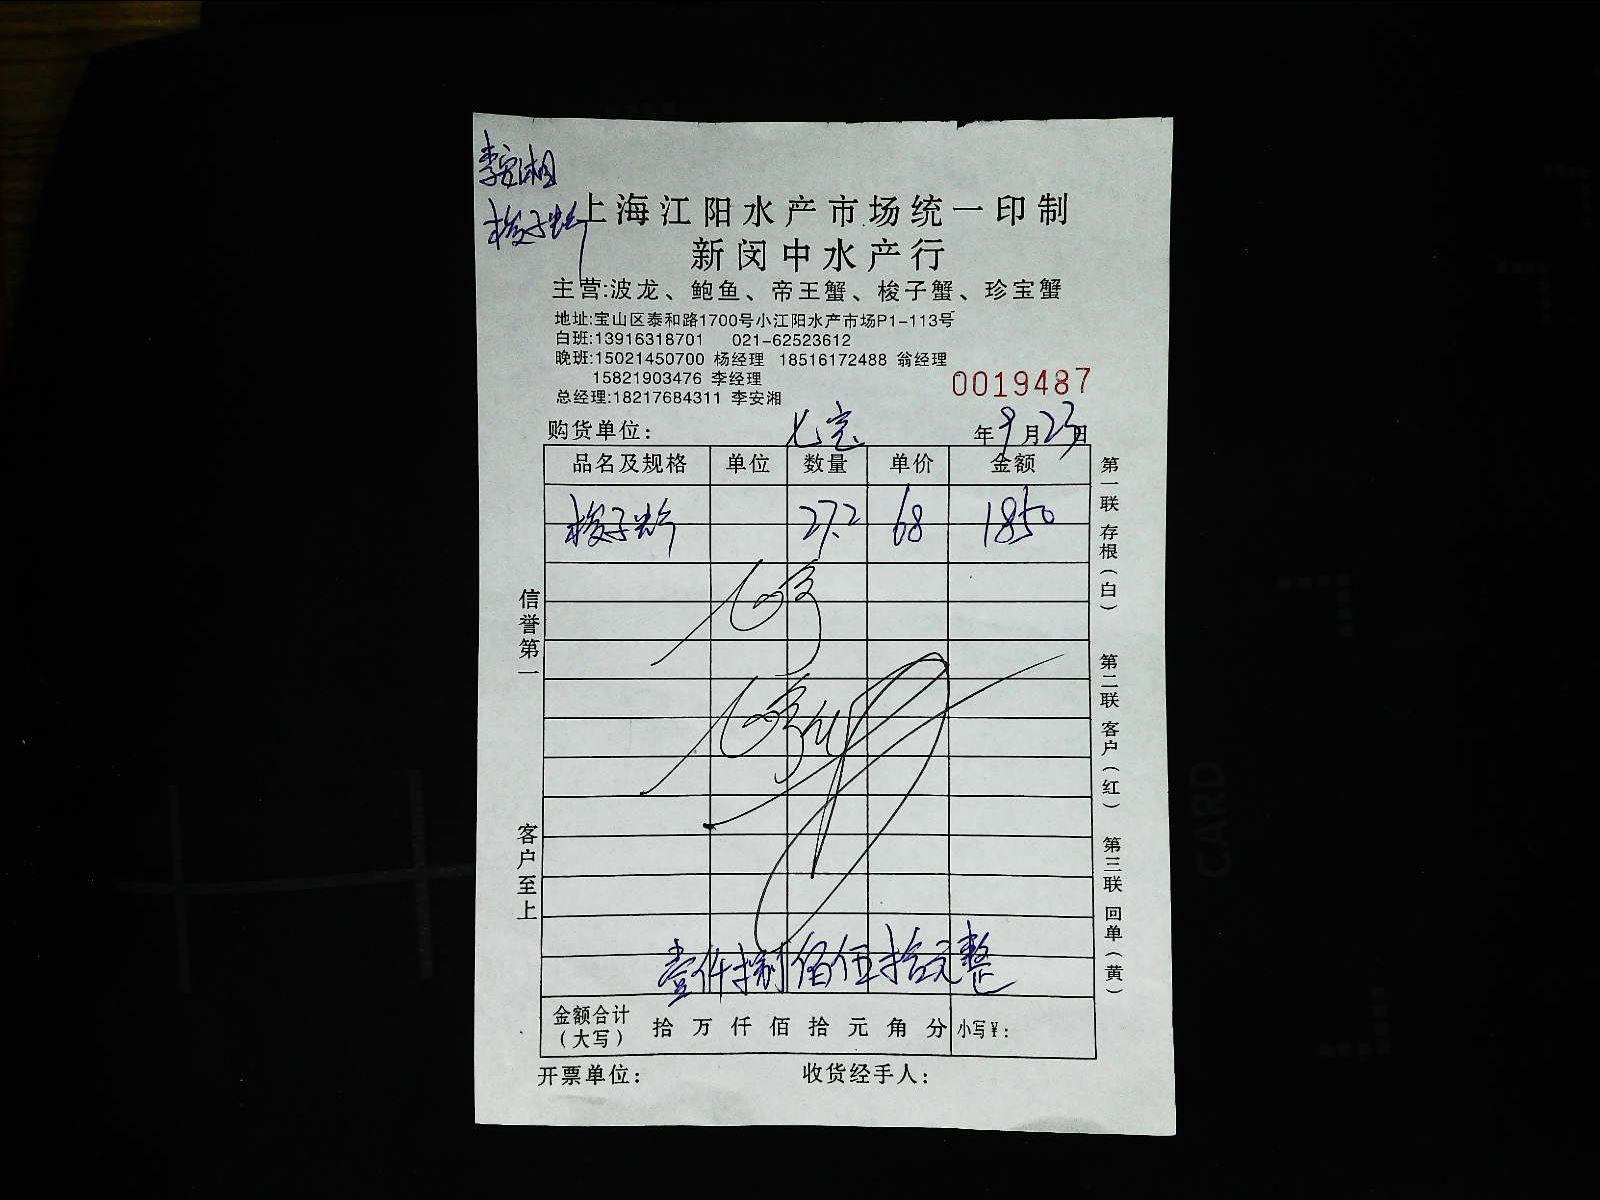 李安湘
梭子蟹
上海江阳水产市场统一印制
新闵中水产行
主营:波龙、鲍鱼、帝王蟹、梭子蟹、珍宝蟹
地址:宝山区泰和路1700号小江阳水产市场P1-113号
白班:13916318701 021-62523612
晚班:15021450700 杨经理 18516172488 翁经理
15821903476 李经理
总经理:18217684311 李安湘
0019487
购货单位: 七宝 年9月23日
品名及规格 单位 数量 单价 金额
梭子蟹 27.2 68 1850
壹仟捌佰伍拾元整
金额合计
(大写)
拾 万 仟 佰 拾 元 角 分 小写¥:
开票单位: 收货经手人:
信誉第一
客户至上
第一联 存根(白)
第二联 客户(红)
第三联 回单(黄)
CARD